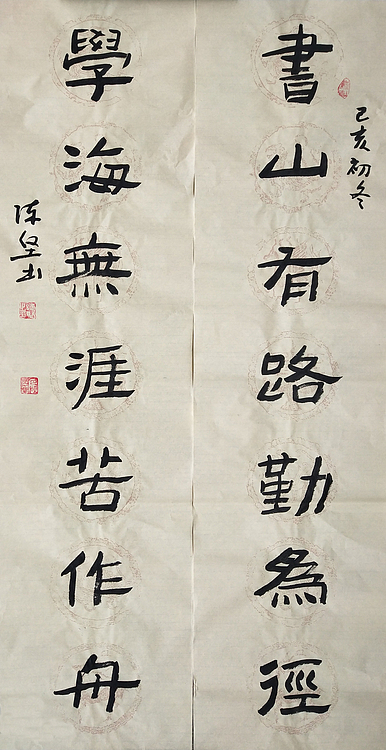 書山有路勤為徑
己亥初冬
學海無涯苦作舟
陈坚书